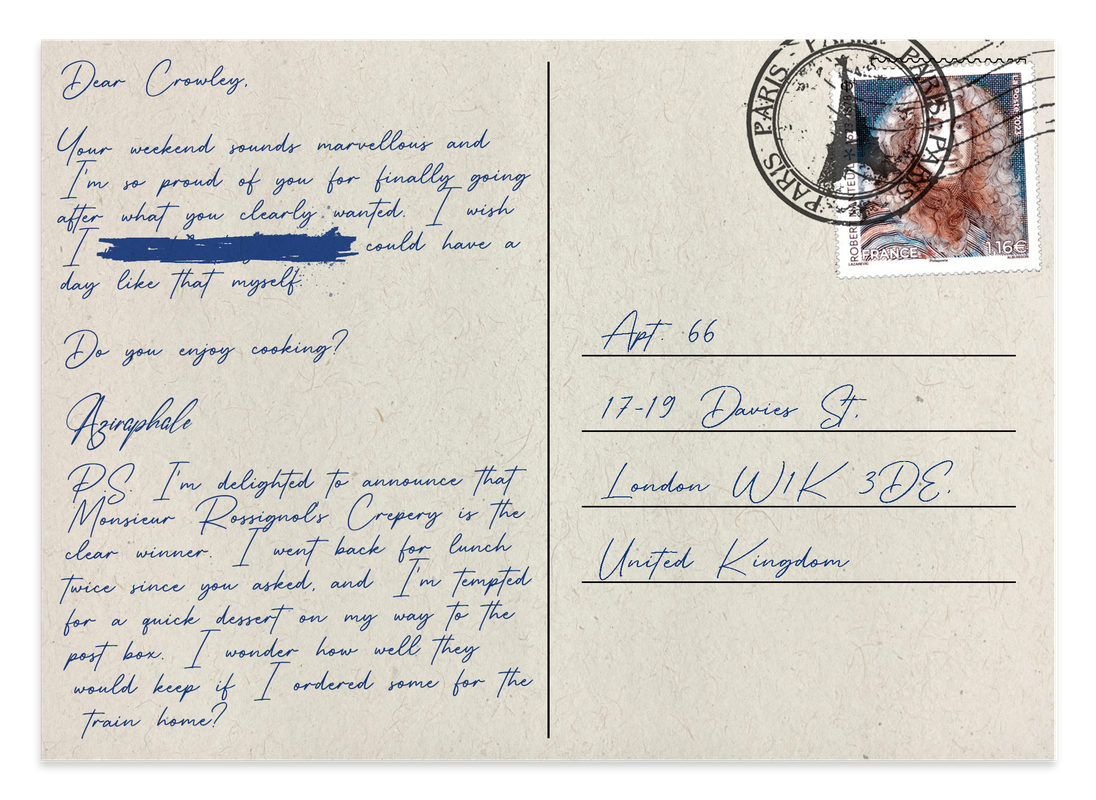 Dear Crowley,
Your weekend sounds marvellous and
I'm so proud of you for finally going
after what you clearly wanted. I wish
I could have a
day like that myself.
Do you enjoy cooking?
Aziraphale
P.S. I'm delighted to announce that
Monsieur Rossignol's Crepery is the
clear winner. I went back for lunch
twice since you asked, and I'm tempted
for a quick dessert on my way to the
post box. I wonder how well they
would keep if I ordered some for the
train home?
PARIS - PARIS - PARIS - PARIS - PARIS
FRANCE
1,16€
Apt. 66
17-19 Davies St.
London W1K 3DE.
United Kingdom